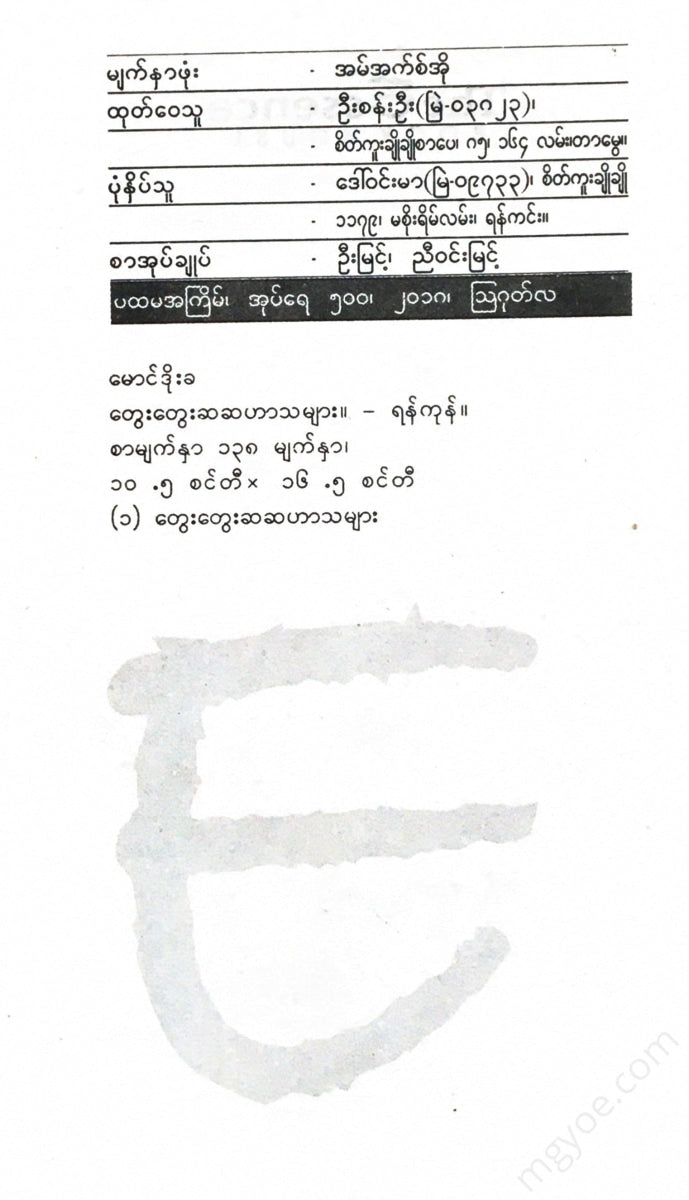 မျက်နှာဖုံး - အမ်အက်စ်အို
ထုတ်ဝေသူ - ဦးစန်းဦး(မြဲ-၀၃၈၂၃)၊
- စိတ်ကူးချိုချိုစာပေ၊ ၈၅၊ ၁၆၄ လမ်း၊တာမွေ။
ပုံနှိပ်သူ - ဒေါ်ဝင်းမာ(မြဲ-၀၉၇၃၃)၊ စိတ်ကူးချိုချို
- ၁၁၇၉၊ မစိုးရိမ်လမ်း၊ ရန်ကင်း။
စာအုပ်ချုပ် - ဦးမြင့်၊ ညီဝင်းမြင့်
ပထမအကြိမ်၊ အုပ်ရေ ၅၀၀၊ ၂၀၁၈၊ ဩဂုတ်လ
မောင်ဒိုးခ
တွေးတွေးဆဆဟာသများ။ – ရန်ကုန်။
စာမျက်နှာ ၁၃၈ မျက်နှာ၊
၁၀ .၅ စင်တီ× ၁၆ .၅ စင်တီ
(၁) တွေးတွေးဆဆဟာသများ
mgyoe.com